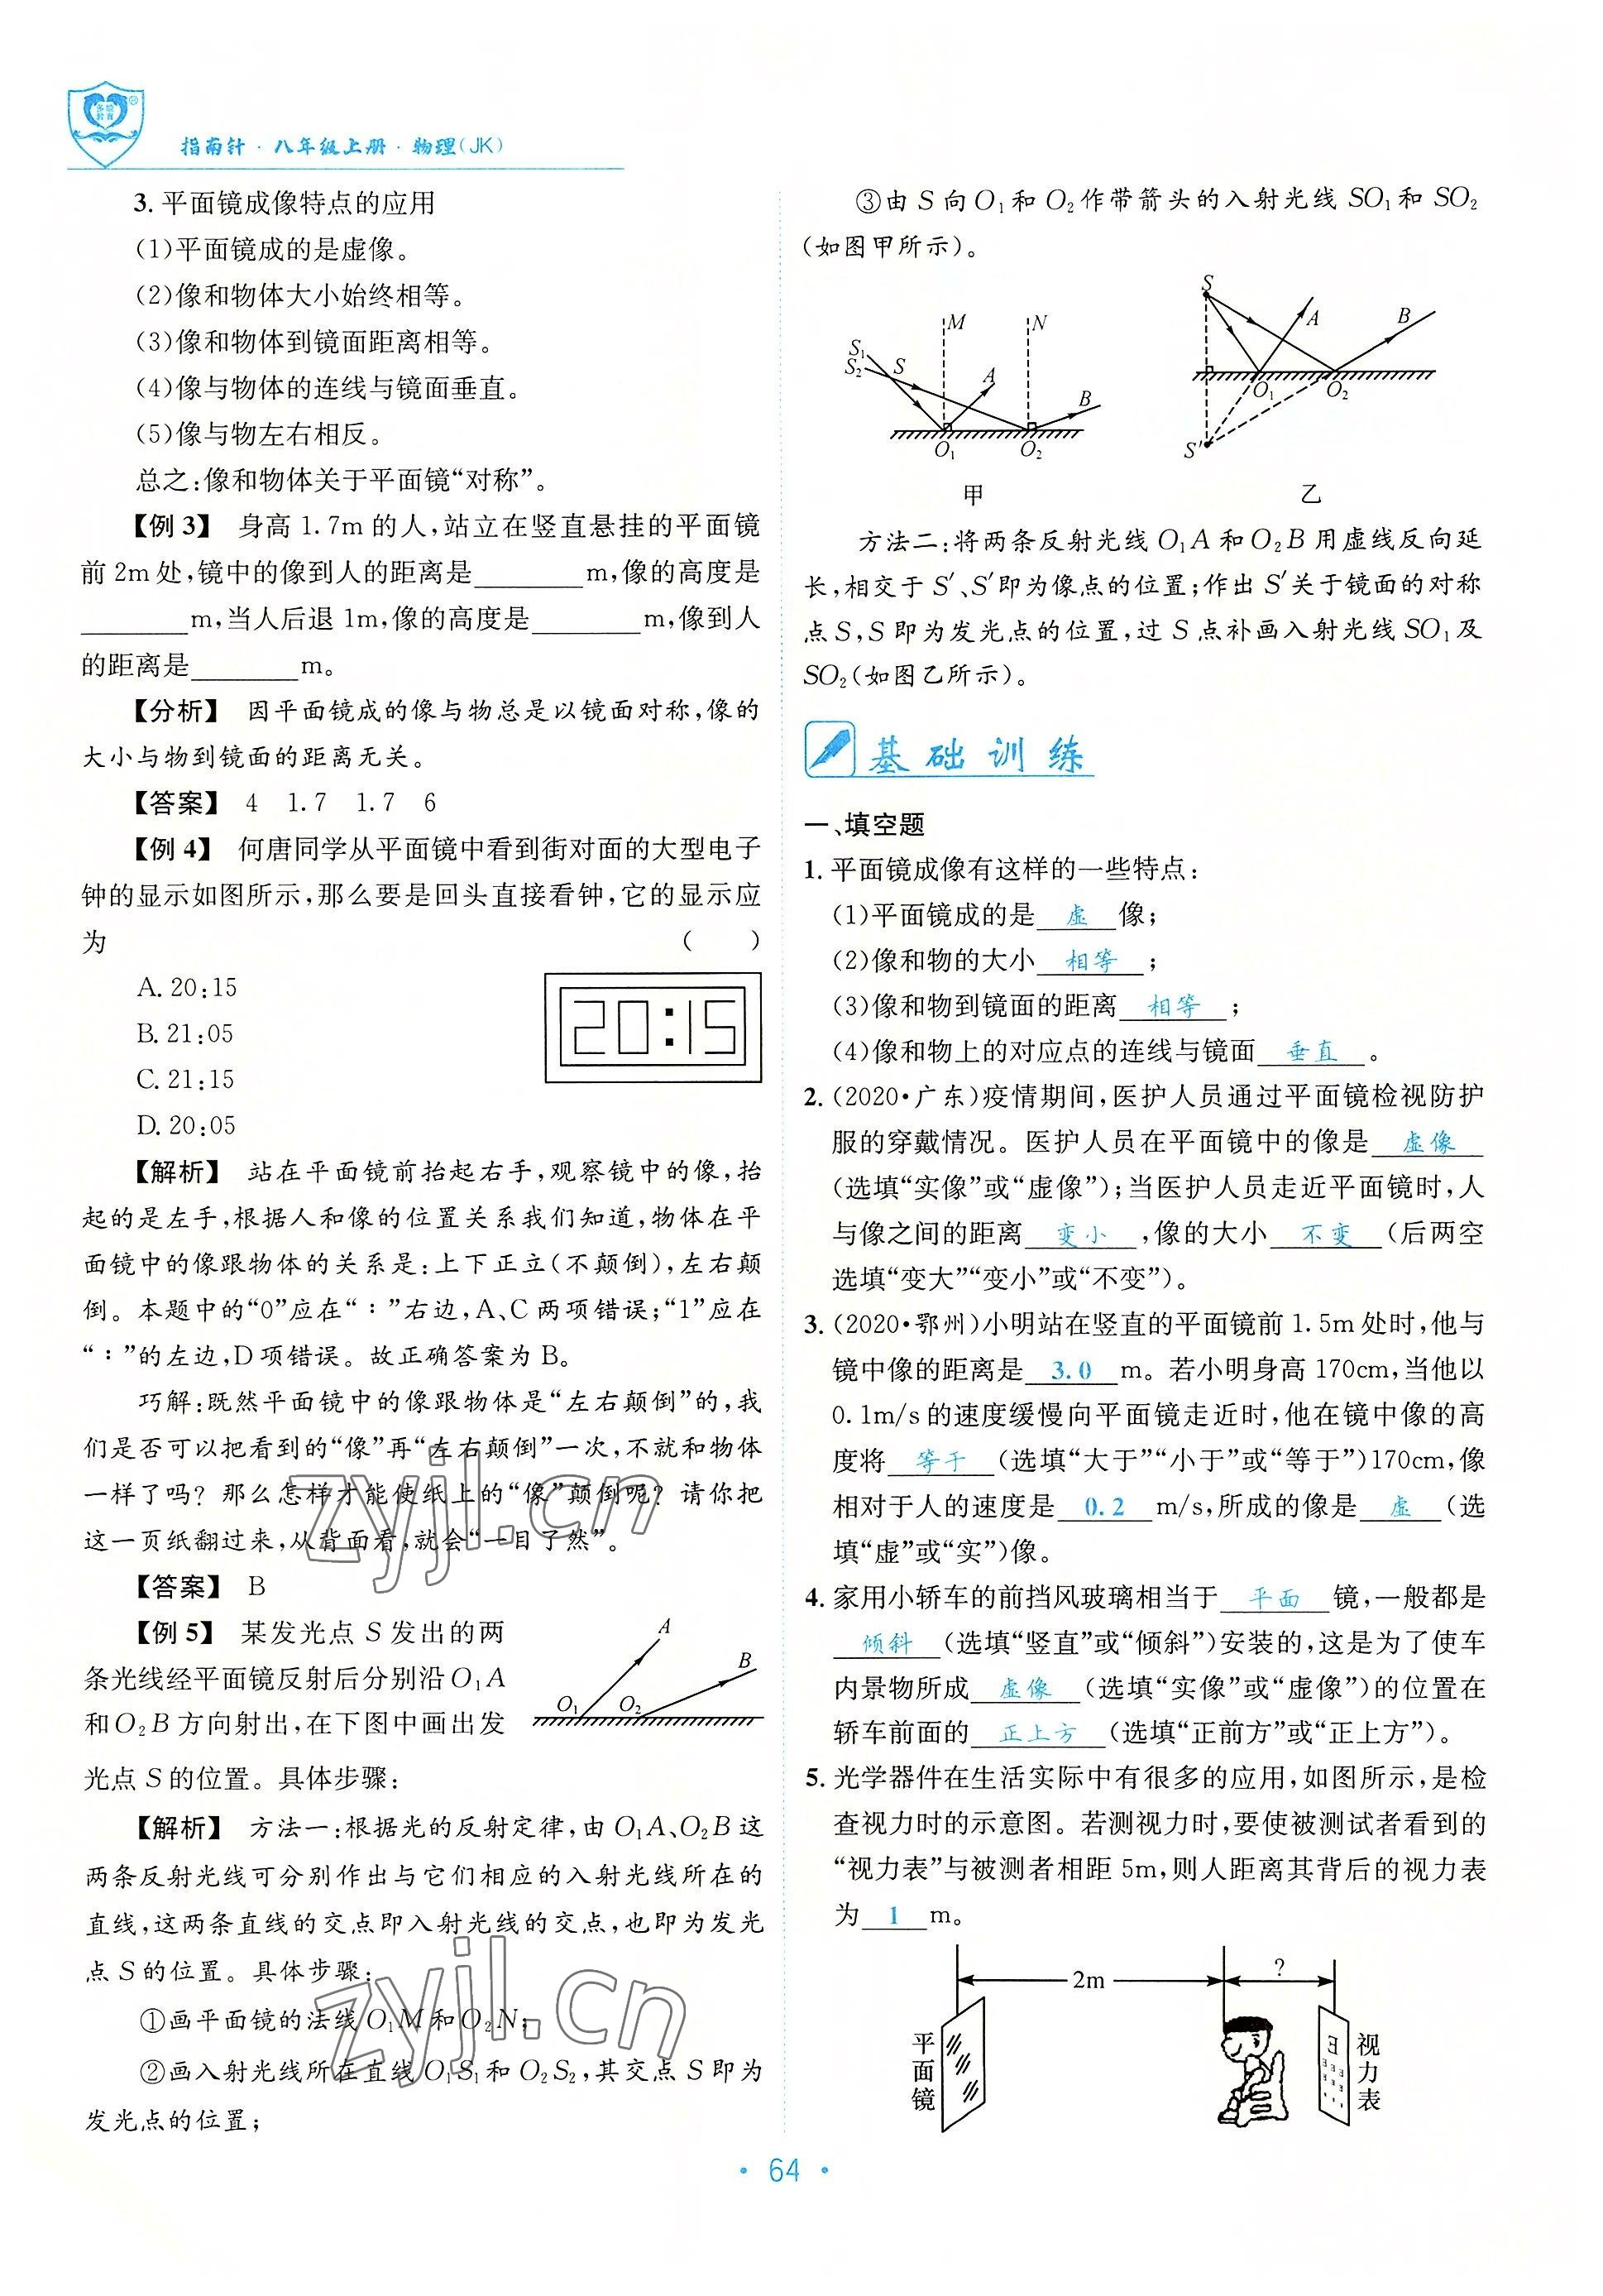 指南针·八年级上册·物理(JK)
3. 平面镜成像特点的应用
(1)平面镜成的是虚像。
(2)像和物体大小始终相等。
(3)像和物体到镜面距离相等。
(4)像与物体的连线与镜面垂直。
(5)像与物左右相反。
总之:像和物体关于平面镜“对称”。
【例3】 身高1.7m的人,站立在竖直悬挂的平面镜
前2m处,镜中的像到人的距离是________m,像的高度是
________m,当人后退1m,像的高度是________m,像到人
的距离是________m。
【分析】 因平面镜成的像与物总是以镜面对称,像的
大小与物到镜面的距离无关。
【答案】 4 1.7 1.7 6
【例4】 何唐同学从平面镜中看到街对面的大型电子
钟的显示如图所示,那么要是回头直接看钟,它的显示应
为 (  )
A. 20:15
B. 21:05
C. 21:15
D. 20:05
20:15
【解析】 站在平面镜前抬起右手,观察镜中的像,抬
起的是左手,根据人和像的位置关系我们知道,物体在平
面镜中的像跟物体的关系是:上下正立(不颠倒),左右颠
倒。本题中的“0”应在“:”右边,A、C两项错误;“1”应在
“:”的左边,D项错误。故正确答案为B。
巧解:既然平面镜中的像跟物体是“左右颠倒”的,我
们是否可以把看到的“像”再“左右颠倒”一次,不就和物体
一样了吗?那么怎样才能使纸上的“像”颠倒呢?请你把
这一页纸翻过来,从背面看,就会“一目了然”。
【答案】 B
【例5】 某发光点S发出的两
条光线经平面镜反射后分别沿O₁A
和O₂B方向射出,在下图中画出发
光点S的位置。具体步骤:
A
B
O₁ O₂
【解析】 方法一:根据光的反射定律,由O₁A、O₂B这
两条反射光线可分别作出与它们相应的入射光线所在的
直线,这两条直线的交点即入射光线的交点,也即为发光
点S的位置。具体步骤:
①画平面镜的法线O₁M和O₂N;
②画入射光线所在直线O₁S₁和O₂S₂,其交点S即为
发光点的位置;
③由S向O₁和O₂作带箭头的入射光线SO₁和SO₂
(如图甲所示)。
M N
S₁
S₂ S A
B
O₁ O₂
甲
S
A B
O₁ O₂
S′
乙
方法二:将两条反射光线O₁A和O₂B用虚线反向延
长,相交于S′、S′即为像点的位置;作出S′关于镜面的对称
点S,S即为发光点的位置,过S点补画入射光线SO₁及
SO₂(如图乙所示)。
基础训练
一、填空题
1. 平面镜成像有这样的一些特点:
(1)平面镜成的是 虚 像;
(2)像和物的大小 相等 ;
(3)像和物到镜面的距离 相等 ;
(4)像和物上的对应点的连线与镜面 垂直 。
2. (2020·广东)疫情期间,医护人员通过平面镜检视防护
服的穿戴情况。医护人员在平面镜中的像是 虚像
(选填“实像”或“虚像”);当医护人员走近平面镜时,人
与像之间的距离 变小 ,像的大小 不变 (后两空
选填“变大”“变小”或“不变”)。
3. (2020·鄂州)小明站在竖直的平面镜前1.5m处时,他与
镜中像的距离是 3.0 m。若小明身高170cm,当他以
0.1m/s的速度缓慢向平面镜走近时,他在镜中像的高
度将 等于 (选填“大于”“小于”或“等于”)170cm,像
相对于人的速度是 0.2 m/s,所成的像是 虚 (选
填“虚”或“实”)像。
4. 家用小轿车的前挡风玻璃相当于 平面 镜,一般都是
倾斜 (选填“竖直”或“倾斜”)安装的,这是为了使车
内景物所成 虚像 (选填“实像”或“虚像”)的位置在
轿车前面的 正上方 (选填“正前方”或“正上方”)。
5. 光学器件在生活实际中有很多的应用,如图所示,是检
查视力时的示意图。若测视力时,要使被测试者看到的
“视力表”与被测者相距5m,则人距离其背后的视力表
为 1 m。
2m ?
平面镜
视力表
zyjl.cn
zyjl.cn
· 64 ·